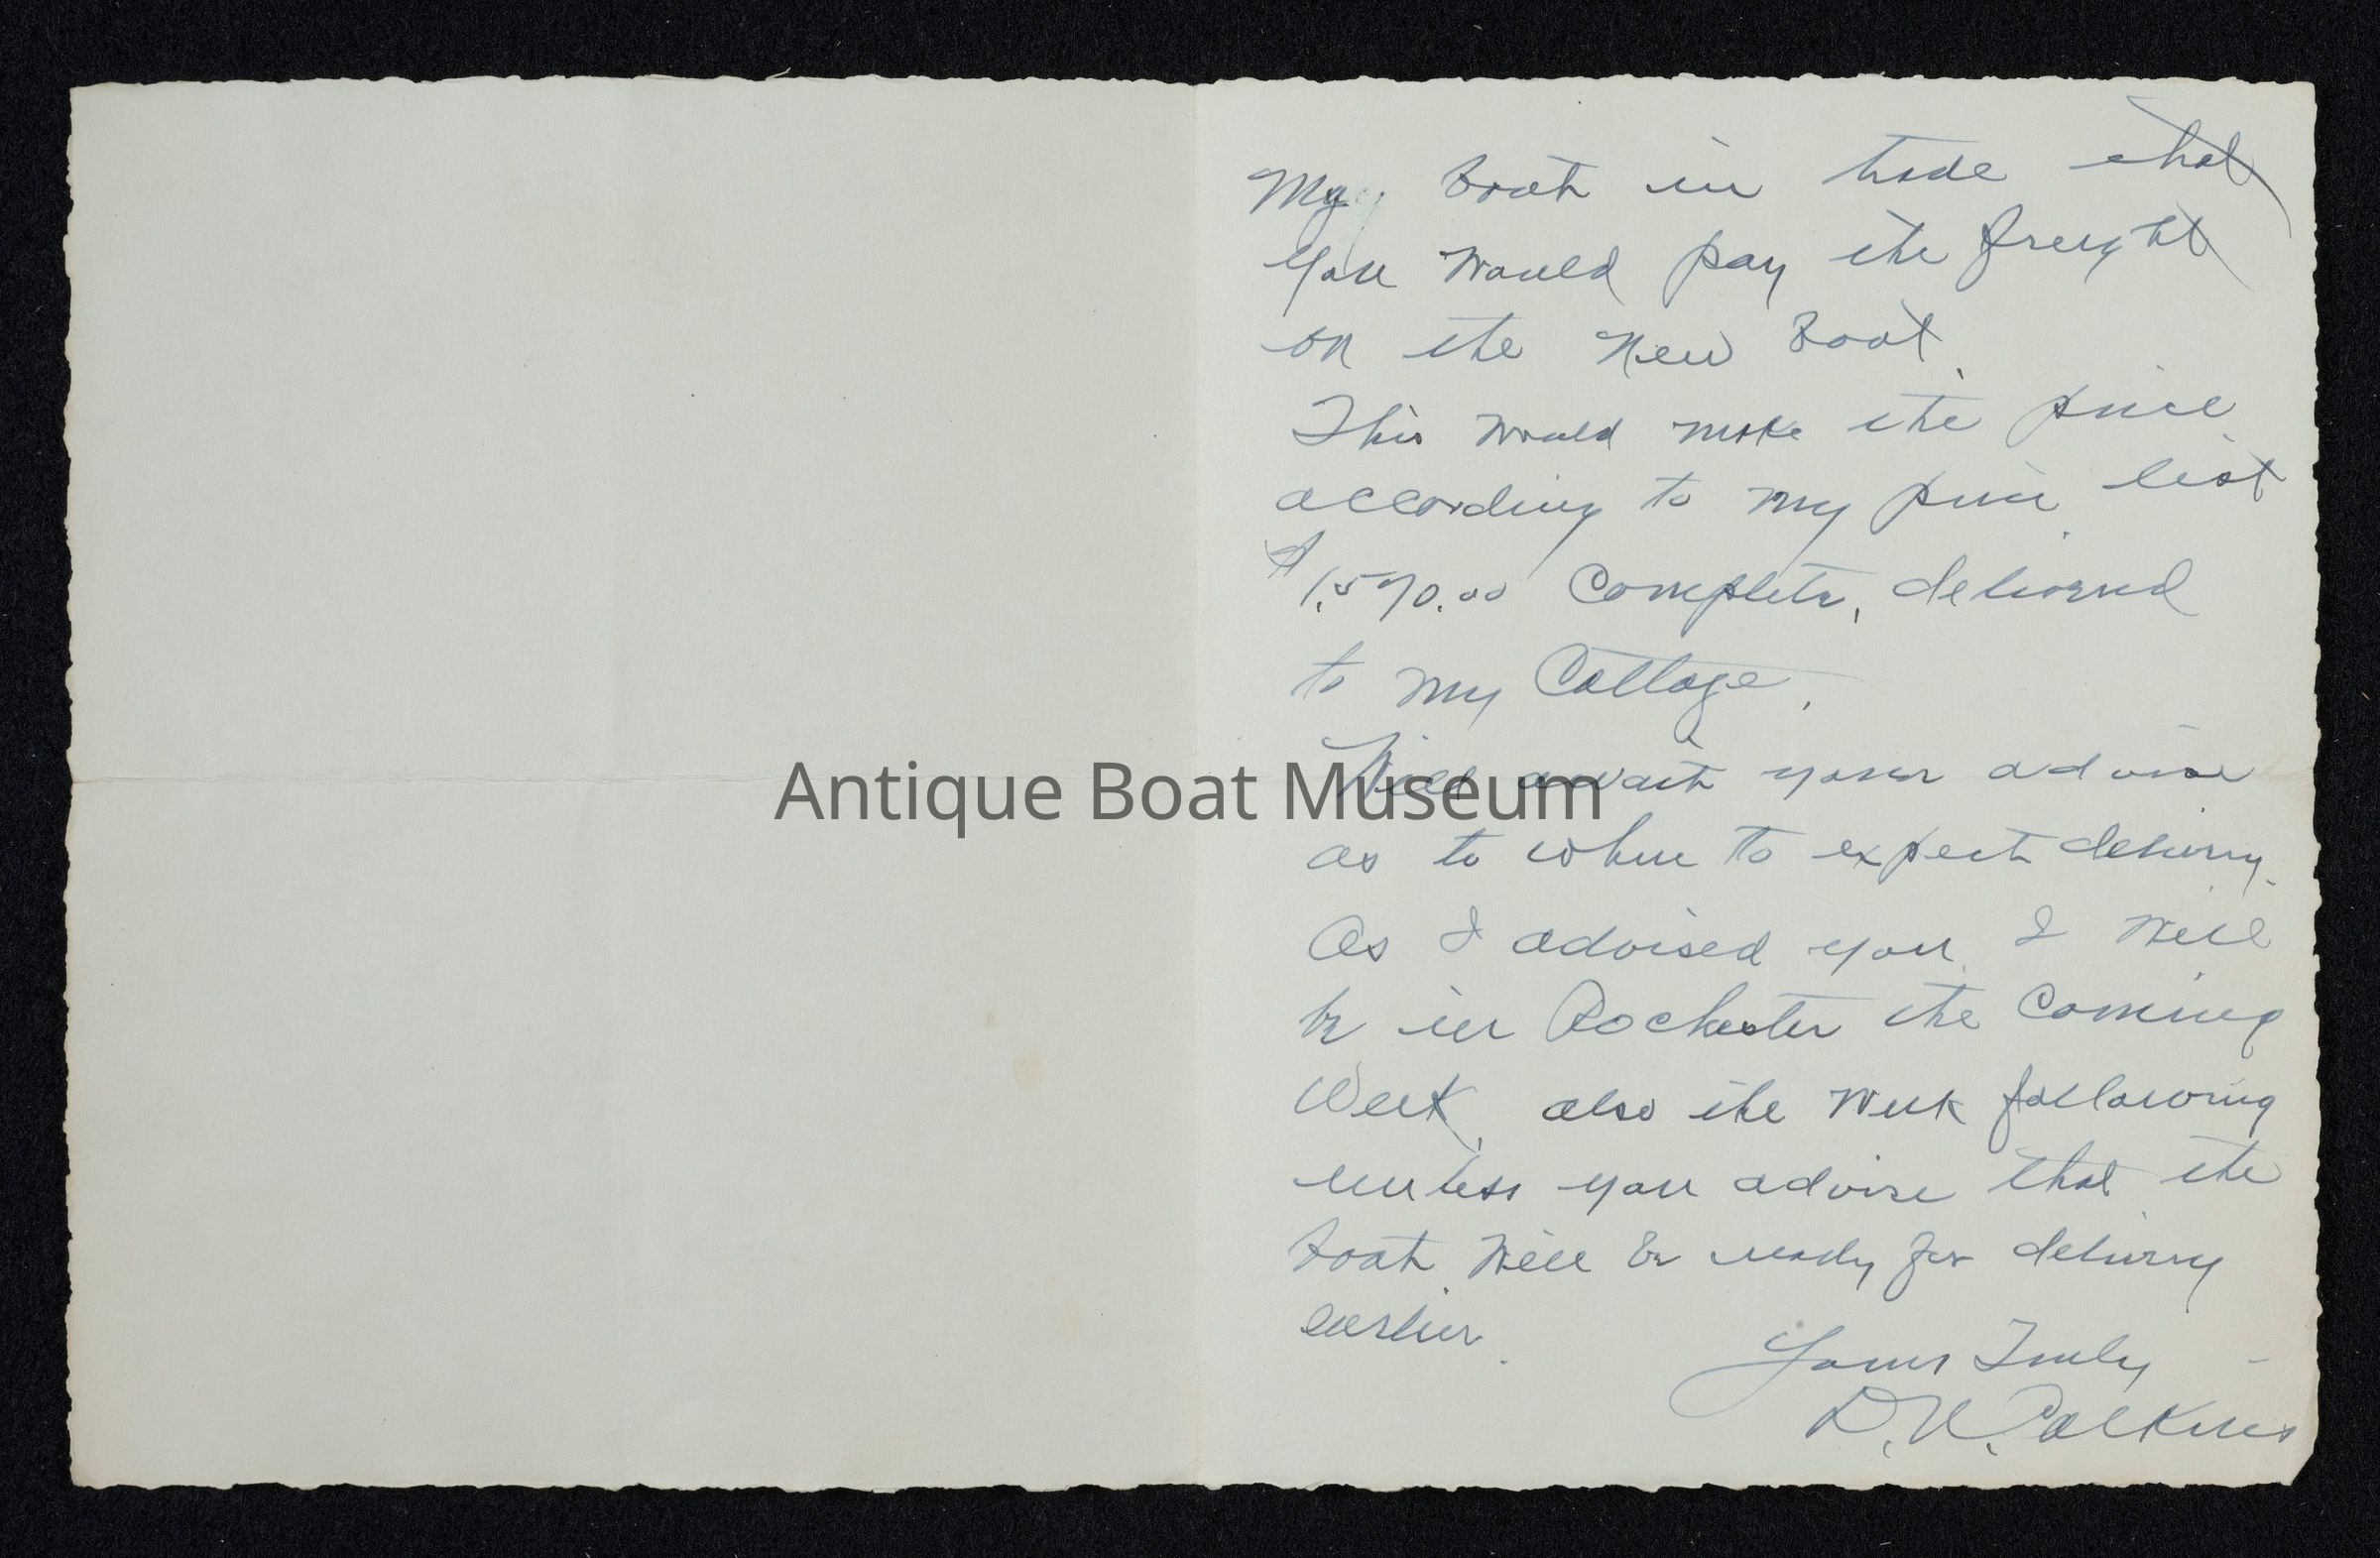 My boat in trade that
you would pay the freight
on the new boat.
This would make the price
according to my price list
$1,570.00 Complete, delivered
to my Cottage.
Will await your advise
as to when to expect delivery.
As I advised you I will
be in Rochester the coming
Week, also the week following
unless you advise that the
boat will be ready for delivery
earlier.
Yours Truly
D. N. Calkins
Antique Boat Museum